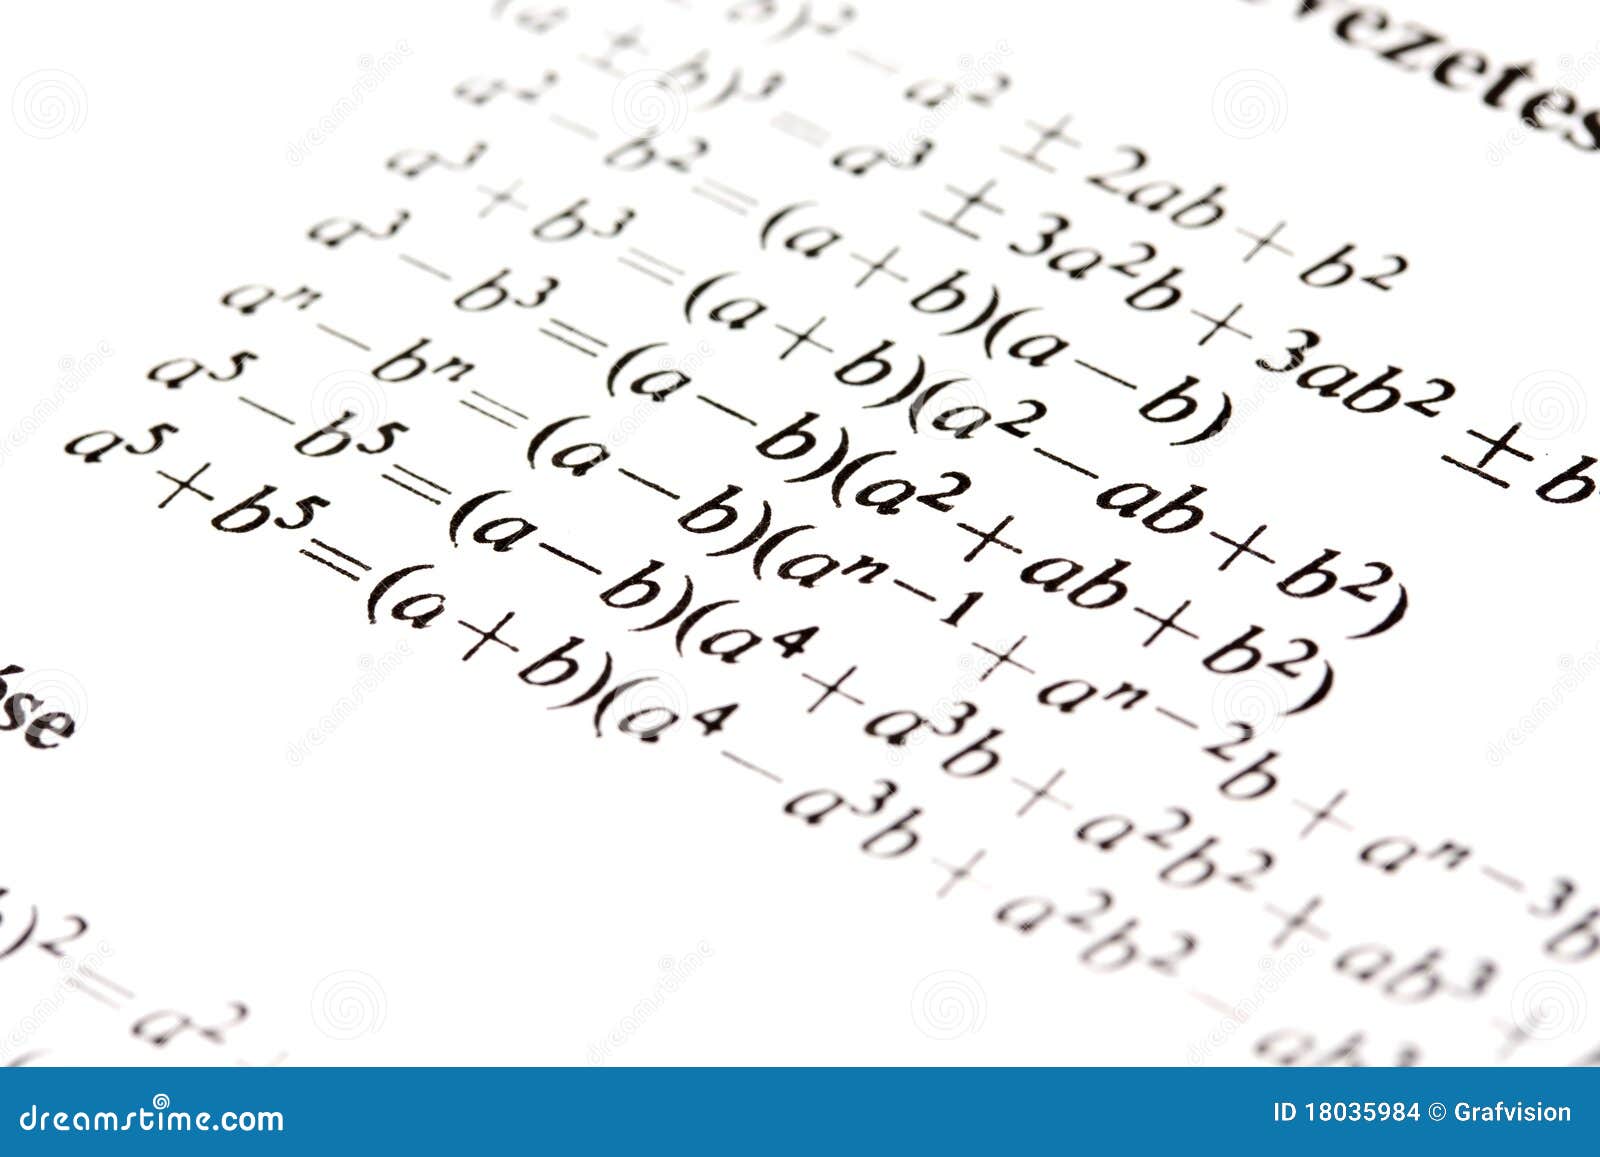 vezetés
(a ± b)² = a² ± 2ab + b²
(a ± b)³ = a³ ± 3a²b + 3ab² ± b
a² − b² = (a + b)(a − b)
a³ + b³ = (a + b)(a² − ab + b²)
a³ − b³ = (a − b)(a² + ab + b²)
aⁿ − bⁿ = (a − b)(aⁿ⁻¹ + aⁿ⁻²b + aⁿ⁻³b
a⁵ − b⁵ = (a − b)(a⁴ + a³b + a²b² + ab³ +
a⁵ + b⁵ = (a + b)(a⁴ − a³b + a²b² − ab³
ése
b)² = a²
dreamstime.com
ID 18035984 © Grafvision